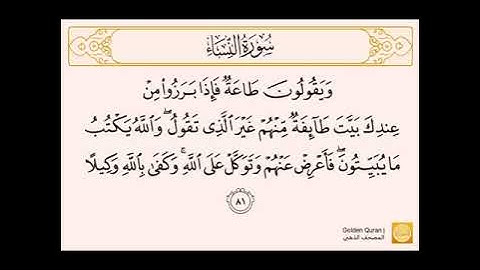 سُورَةُ النِّسَاءِ
وَيَقُولُونَ طَاعَةٌ فَإِذَا بَرَزُوا۟ مِنْ
عِندِكَ بَيَّتَ طَآئِفَةٌ مِّنْهُمْ غَيْرَ ٱلَّذِى تَقُولُ ۖ وَٱللَّهُ يَكْتُبُ
مَا يُبَيِّتُونَ ۖ فَأَعْرِضْ عَنْهُمْ وَتَوَكَّلْ عَلَى ٱللَّهِ ۚ وَكَفَىٰ بِٱللَّهِ وَكِيلًا
٨١
Golden Quran |
المصحف الذهبي